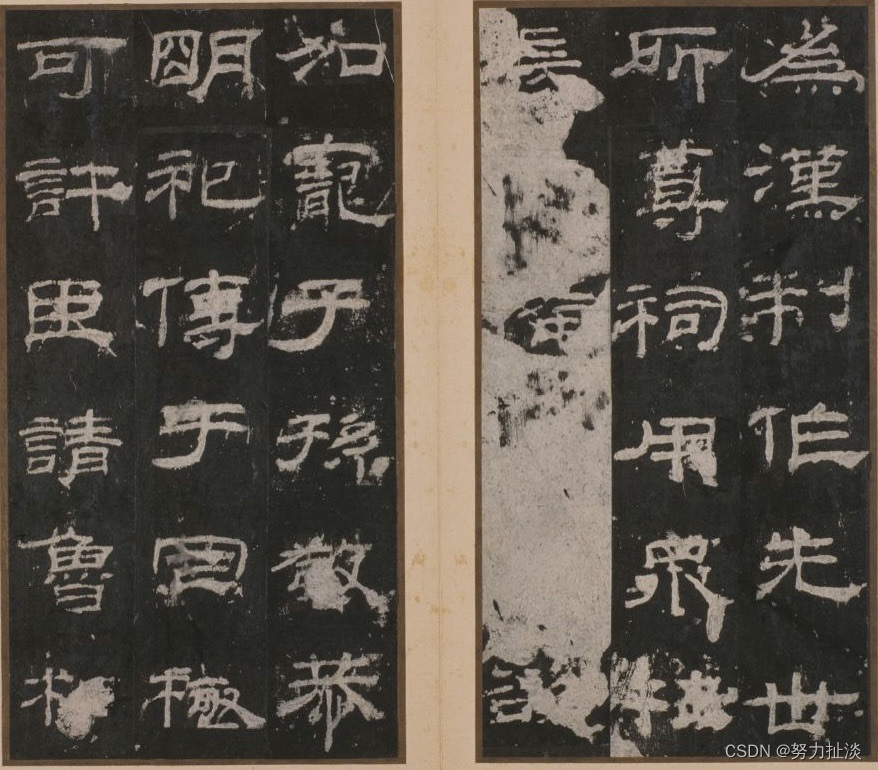 為漢制作先世
所尊祠用眾牲
長
加寵子孫敬恭
明祀傳于罔極
可許臣請魯相
CSDN @努力扯淡